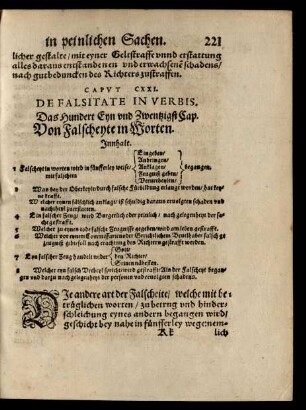 in peinlichen Sachen. 221
licher gestalte / mit eyner Geltstraffe vnnd erstattung
alles daraus entstandenen vnd erwachsenē schadens /
nach gutbeduncken des Richters zustraffen.
CAPVT CXXI.
DE FALSITATE IN VERBIS,
Das Hundert Eyn vnd Zwentzigst Cap.
Von Falscheyte in Worten.
Innhalt.
Eingeben /
Anbringen /
1 Falscheyt in worten wird in fünfferley weise / mit falschem Anklagen / begangen.
Zeugnis geben /
Vorurtheilen /
2 Was bey der Oberkeyt durch falsche Fürstellung erlanget worden / hat keyne krafft.
3 Welcher eynen fälschlich anklagt ist schuldig daraus erfolgten schaden vnd
nachtheyl zuerstatten.
4 Ein falscher Zeuge wird Burgerlich oder peinlich / nach gelegenheyt der sache gestrafft.
5 Welcher zu eynen oder falsche Zeugnisse gegeben word am leben gestrafft.
6 Welcher vor eynem Commissario oder Gerichtlichem Beuelhaber falsch gezeugnis gibt soll nach ermessung des Richters gestrafft werden.
Gott /
7 Eyn falscher Zeug handelt wider den Richter /
Seinen nähesten.
8 Welcher eyn falsch Vrtheyl spricht wird gestrafft / An der Falscheyt begangen vnd darzu nach gelegenheyt der personen vnd erfolgten schadens.
DIe andere art der Falscheite / welche mit betrüglichen
worten / zu betrug vnd hinderschleichung
eynes andern begangen wird /
geschicht bey nahe in fünfferley wege: nem-
Kk lich